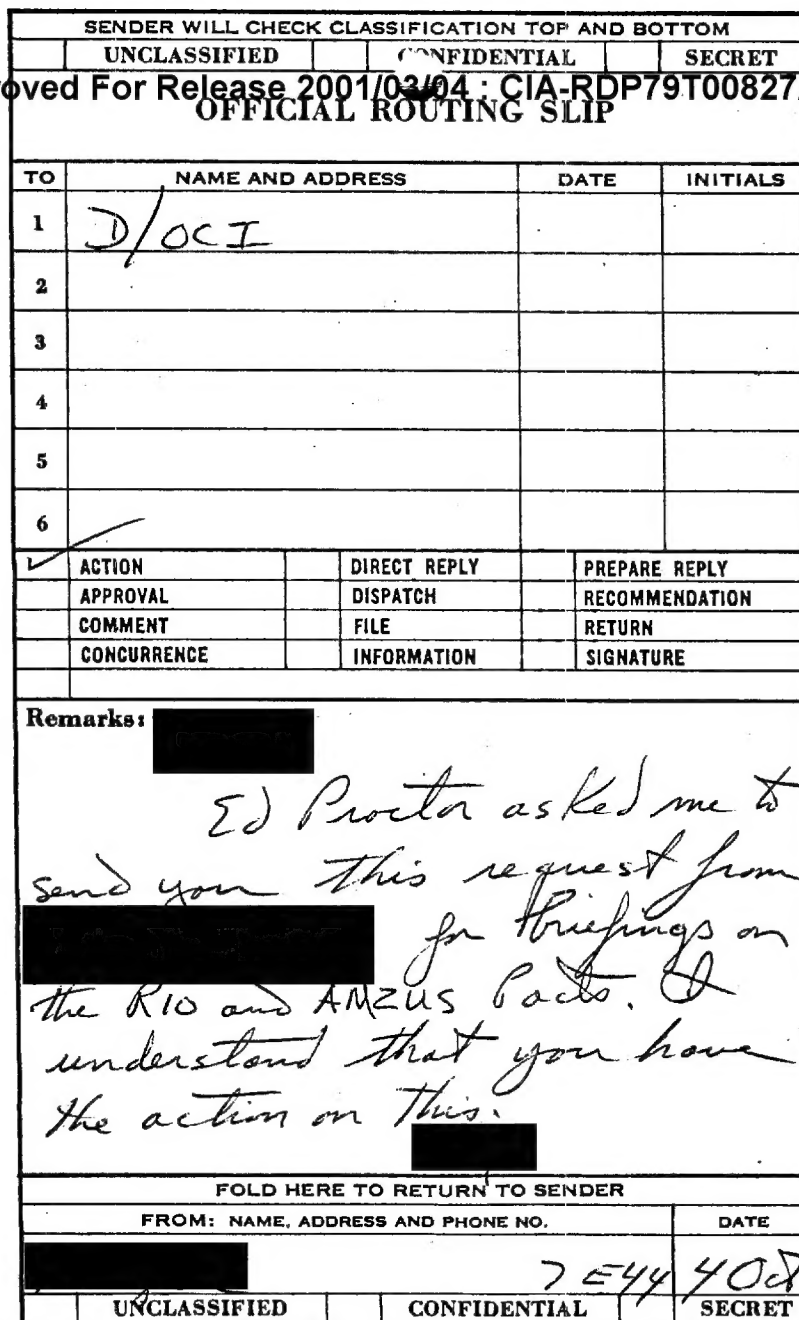 SENDER WILL CHECK CLASSIFICATION TOP AND BOTTOM
UNCLASSIFIED CONFIDENTIAL SECRET
oved For Release 2001/03/04 : CIA-RDP79T00827
OFFICIAL ROUTING SLIP
TO NAME AND ADDRESS DATE INITIALS
1 D/OCI
2
3
4
5
6
✓ ACTION DIRECT REPLY PREPARE REPLY
APPROVAL DISPATCH RECOMMENDATION
COMMENT FILE RETURN
CONCURRENCE INFORMATION SIGNATURE
Remarks:
Ed Proctor asked me to
send you this request from
for Briefings on
the RIO and ANZUS Pacts. I
understand that you have
the action on this.
FOLD HERE TO RETURN TO SENDER
FROM: NAME, ADDRESS AND PHONE NO. DATE
7E44 4 Oct
UNCLASSIFIED CONFIDENTIAL SECRET